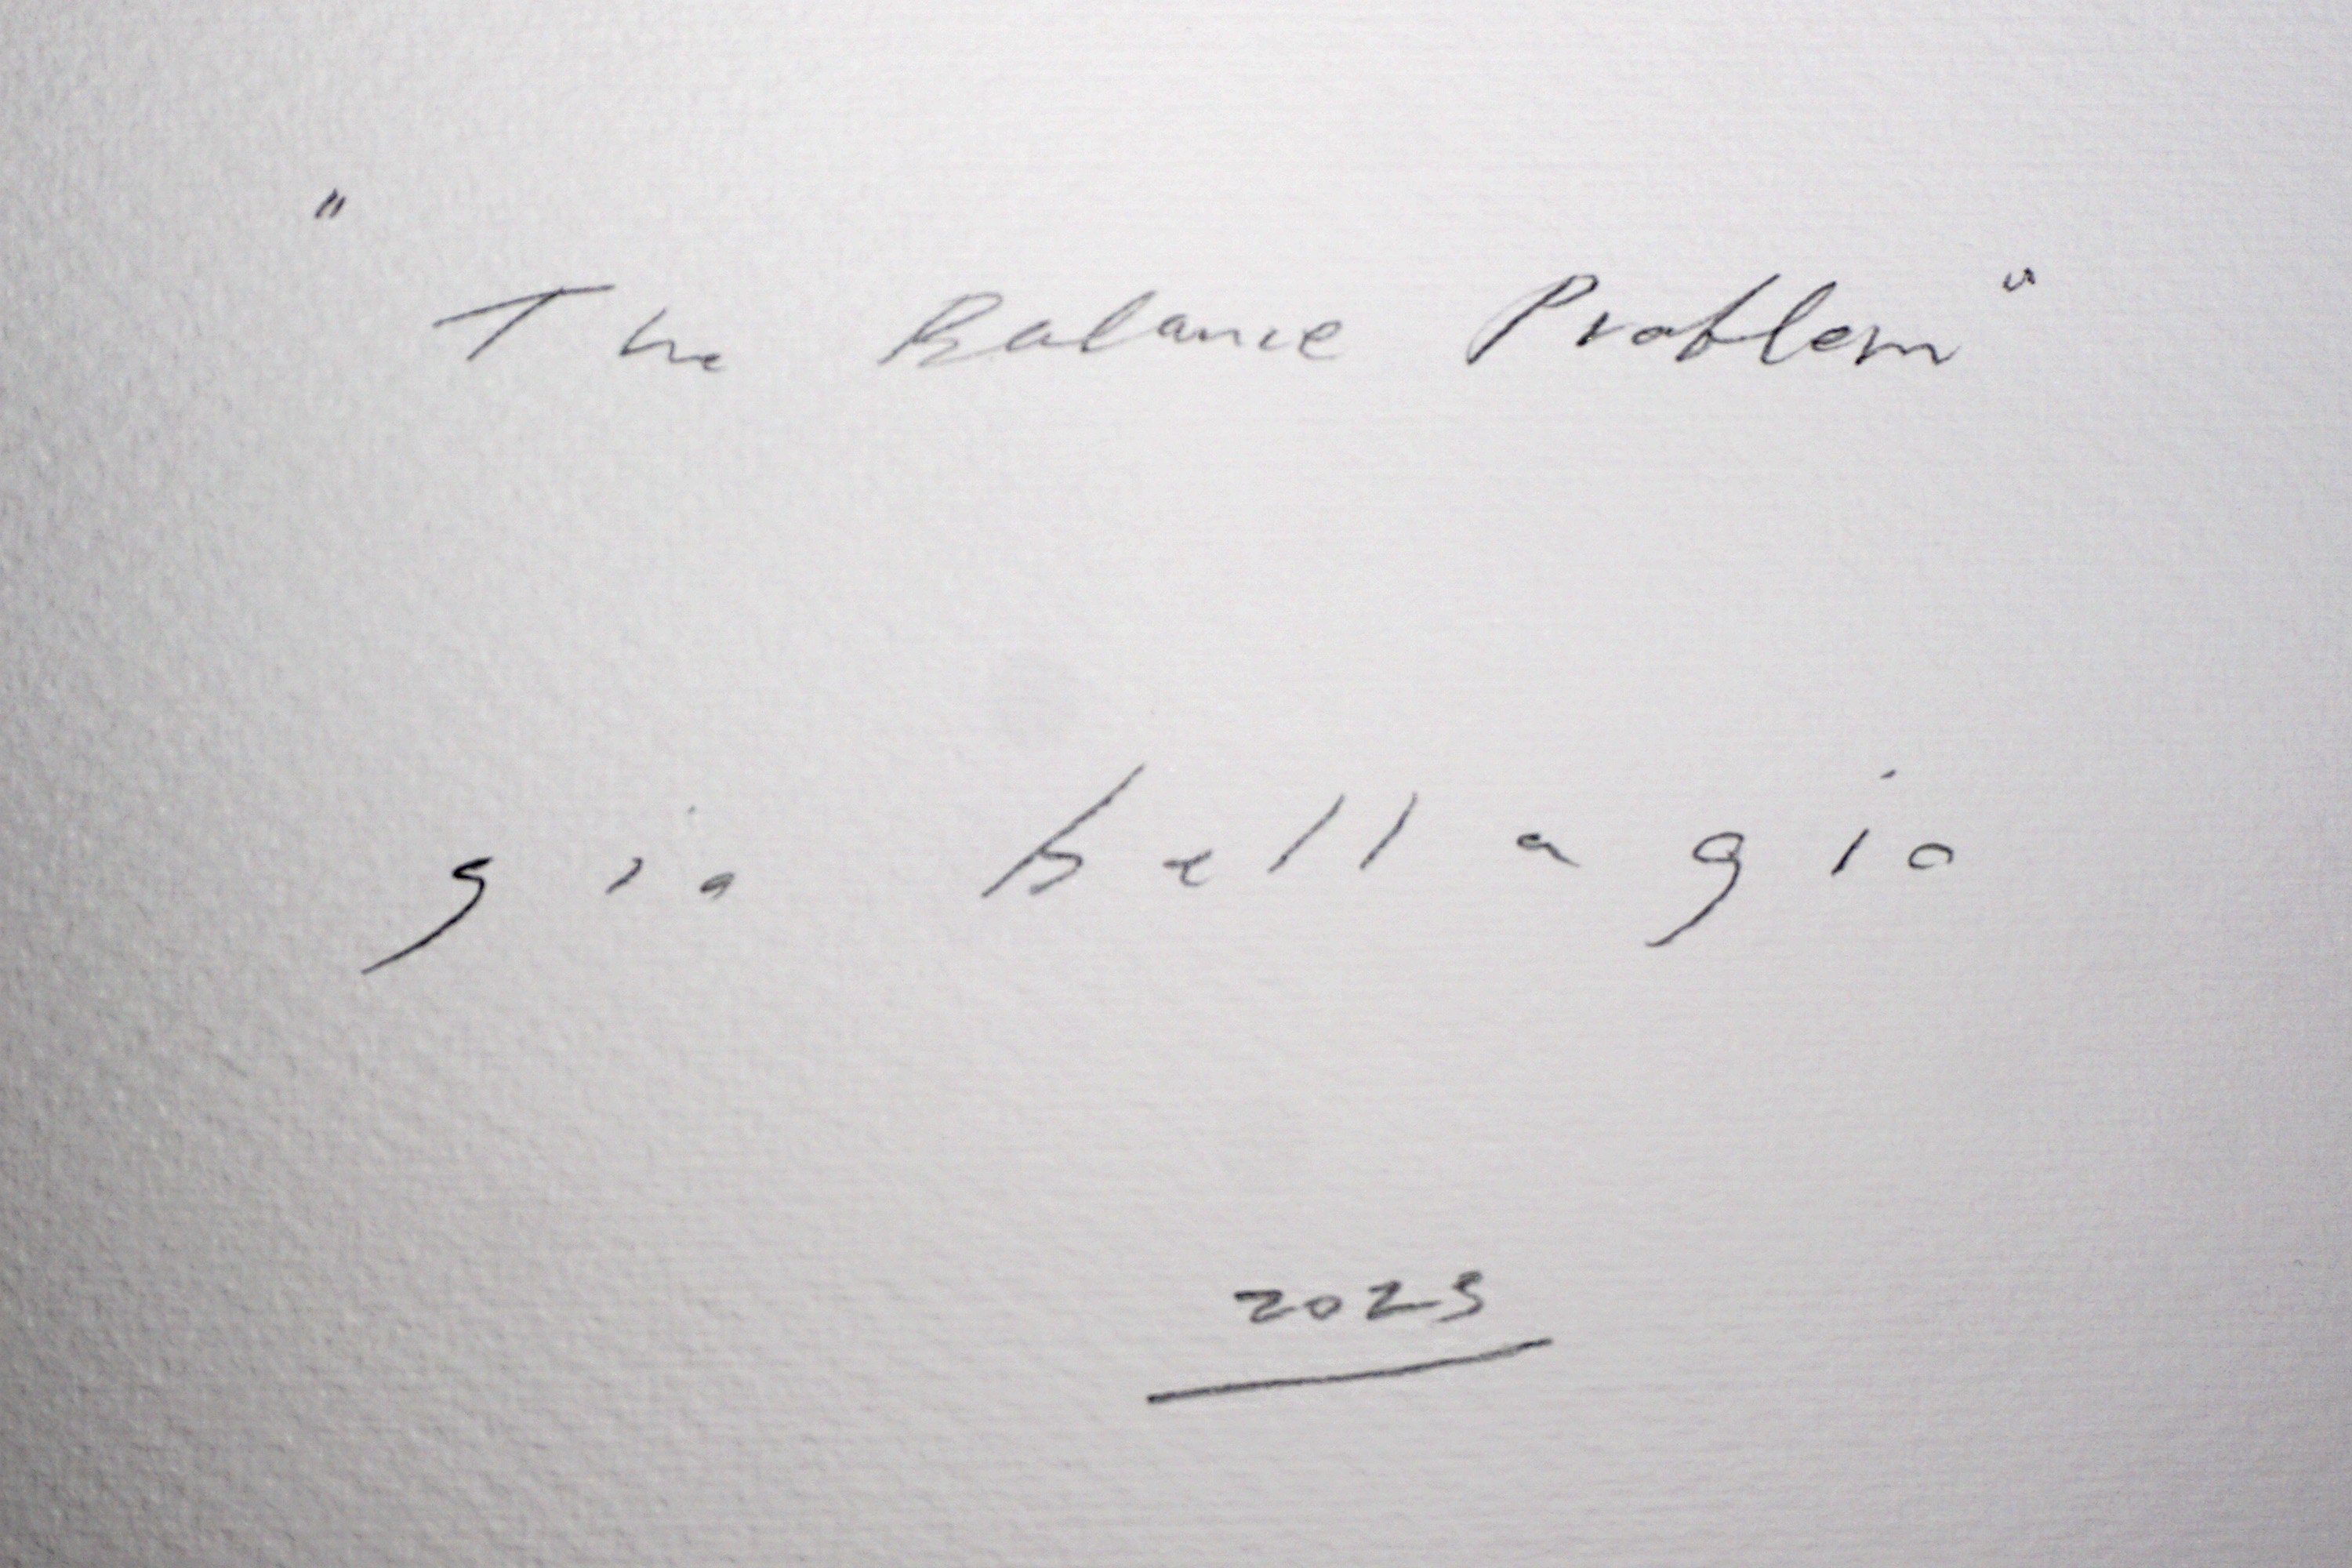 "The Balance Problem"
gia bellagio
2023